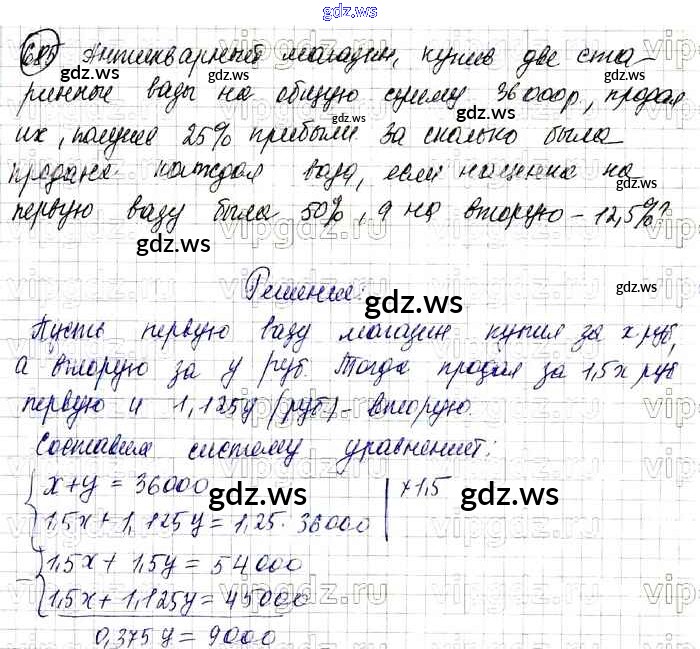 gdz.ws
685 Антикварный магазин, купив две ста-
ринные вазы на общую сумму 36000р, продал
их, получив 25% прибыли За сколько была
продана каждая ваза, если наценка на
первую вазу была 50%, а на вторую - 12,5%?
Решение:
Пусть первую вазу магазин купил за x руб,
а вторую за y руб. Тогда продал за 1,5x руб
первую и 1,125y (руб) - вторую.
Составим систему уравнений:
x+y = 36000 | × 1,5
1,5x + 1,125y = 1,25 · 36000
1,5x + 1,5y = 54000
1,5x + 1,125y = 45000
0,375y = 9000